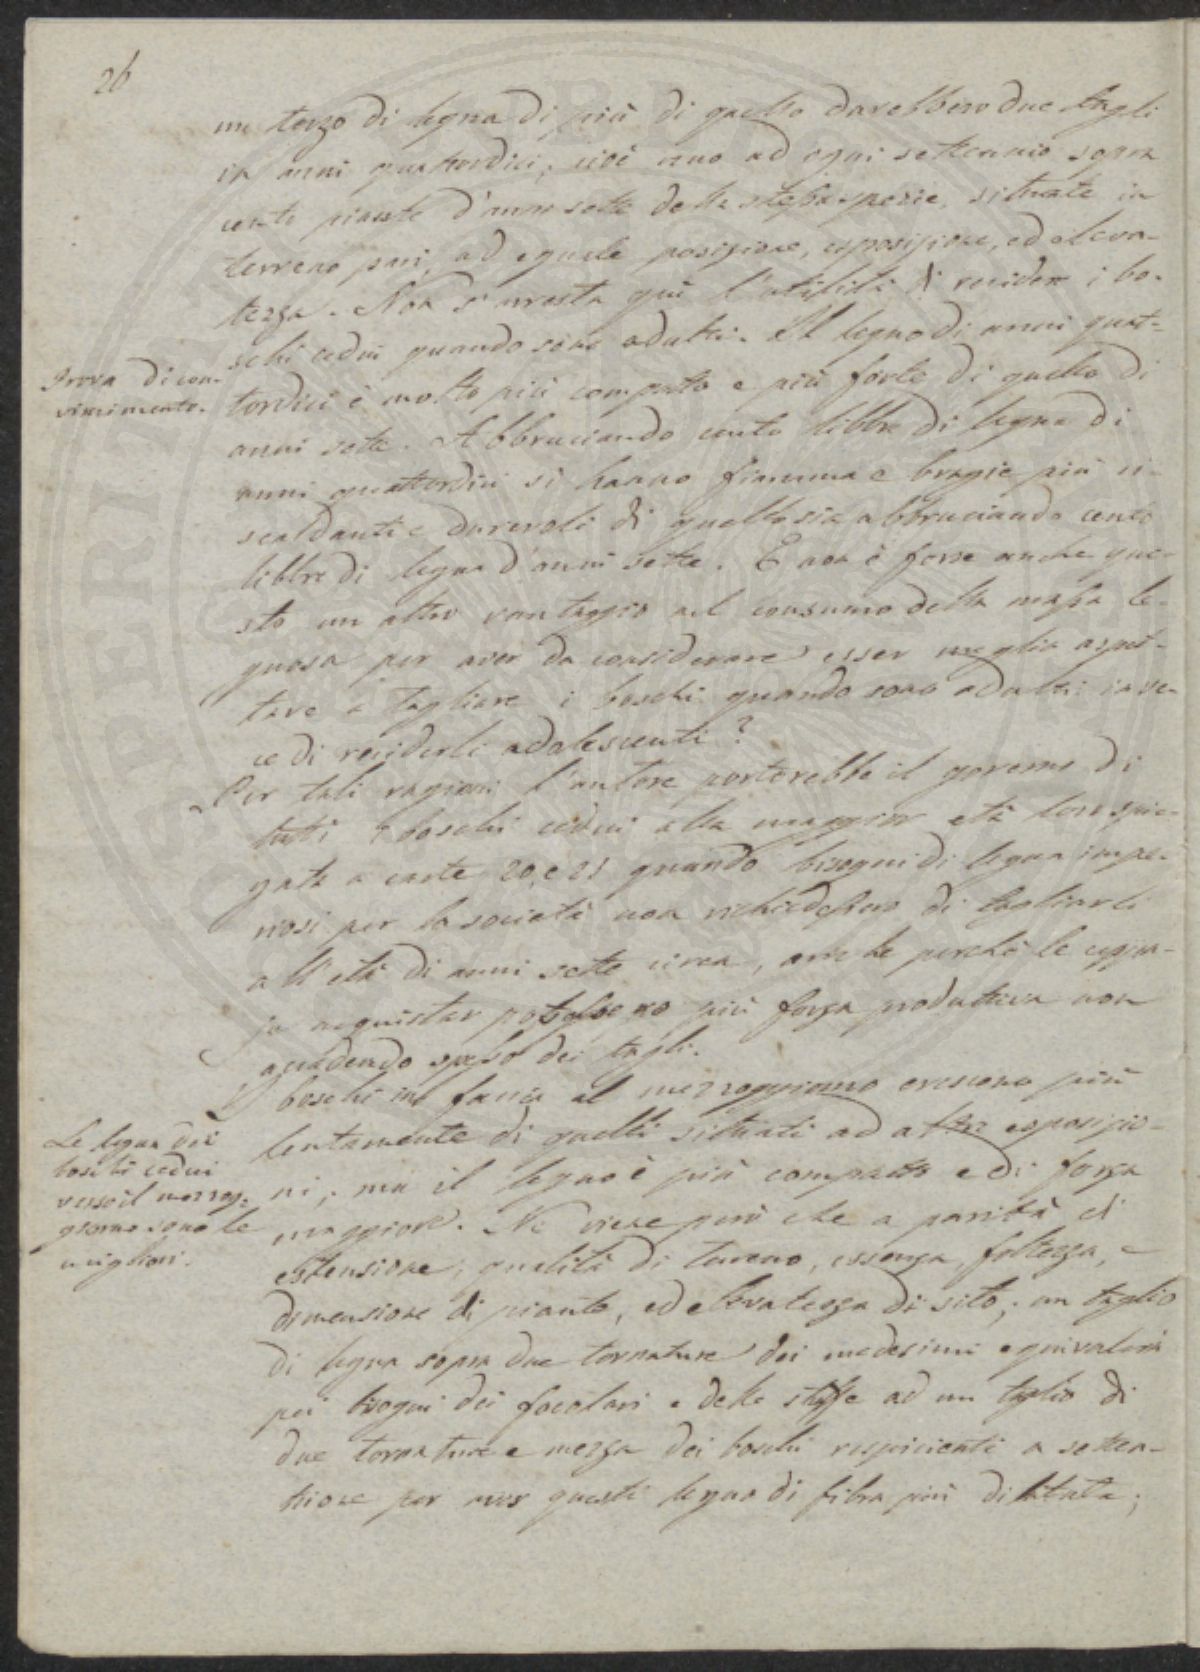 26
un terzo di legna di più di quello darebbero due tagli
in anni quattordici, cioè uno ad ogni settennio sopra
cento piante d'anni sette della stessa spezie, situate in
terreno pari, ad eguale posizione, esposizione, ed eleva-
tezza. Non s'arresta quì l'utilità di recidere i bo-
schi cedui quando sono adulti. Il legno di anni quat-
Prova di con-
vincimento.
tordici è molto più compatto e più forte di quello di
anni sette. Abbruciando cento libbre di legna di
anni quattordici si hanno fiamma e bragie più ri-
scaldanti e durevoli di quello sia abbruciando cento
libbre di legna d'anni sette. E non è forse anche que-
sto un altro vantaggio nel consumo della massa le-
gnosa per aver da considerare esser meglio aspet-
tare a tagliare i boschi quando sono adulti inve-
ce di reciderli adolescenti?
Per tali ragioni l'autore porterebbe il governo di
tutti i boschi cedui alla maggior età loro spie-
gata a carte 20, e 21 quando bisogni di legna impe-
riosi per la società non richiedessero di tagliarli
all'età di anni sette circa, anche perchè le ceppa-
je acquistar potessero più forza produttiva non
accadendo spesso dei tagli.
I boschi in faccia al mezzogiorno crescono più
lentamente di quelli situati ad altre esposizio-
Le legna dei
boschi cedui
verso il mezzog-
giorno sono le
migliori.
ni, ma il legno è più compatto e di forza
maggiore. Ne viene però che a parità di
estensione, qualità di terreno, essenza, foltezza, e
dimensione di piante, ed elevatezza di sito, un taglio
di legna sopra due tornature dei medesimi equivalerà
pei bisogni dei focolari e delle stuffe ad un taglio di
due tornature e mezza dei boschi respicienti a setten-
trione per aver questi legno di fibra più dilatata;